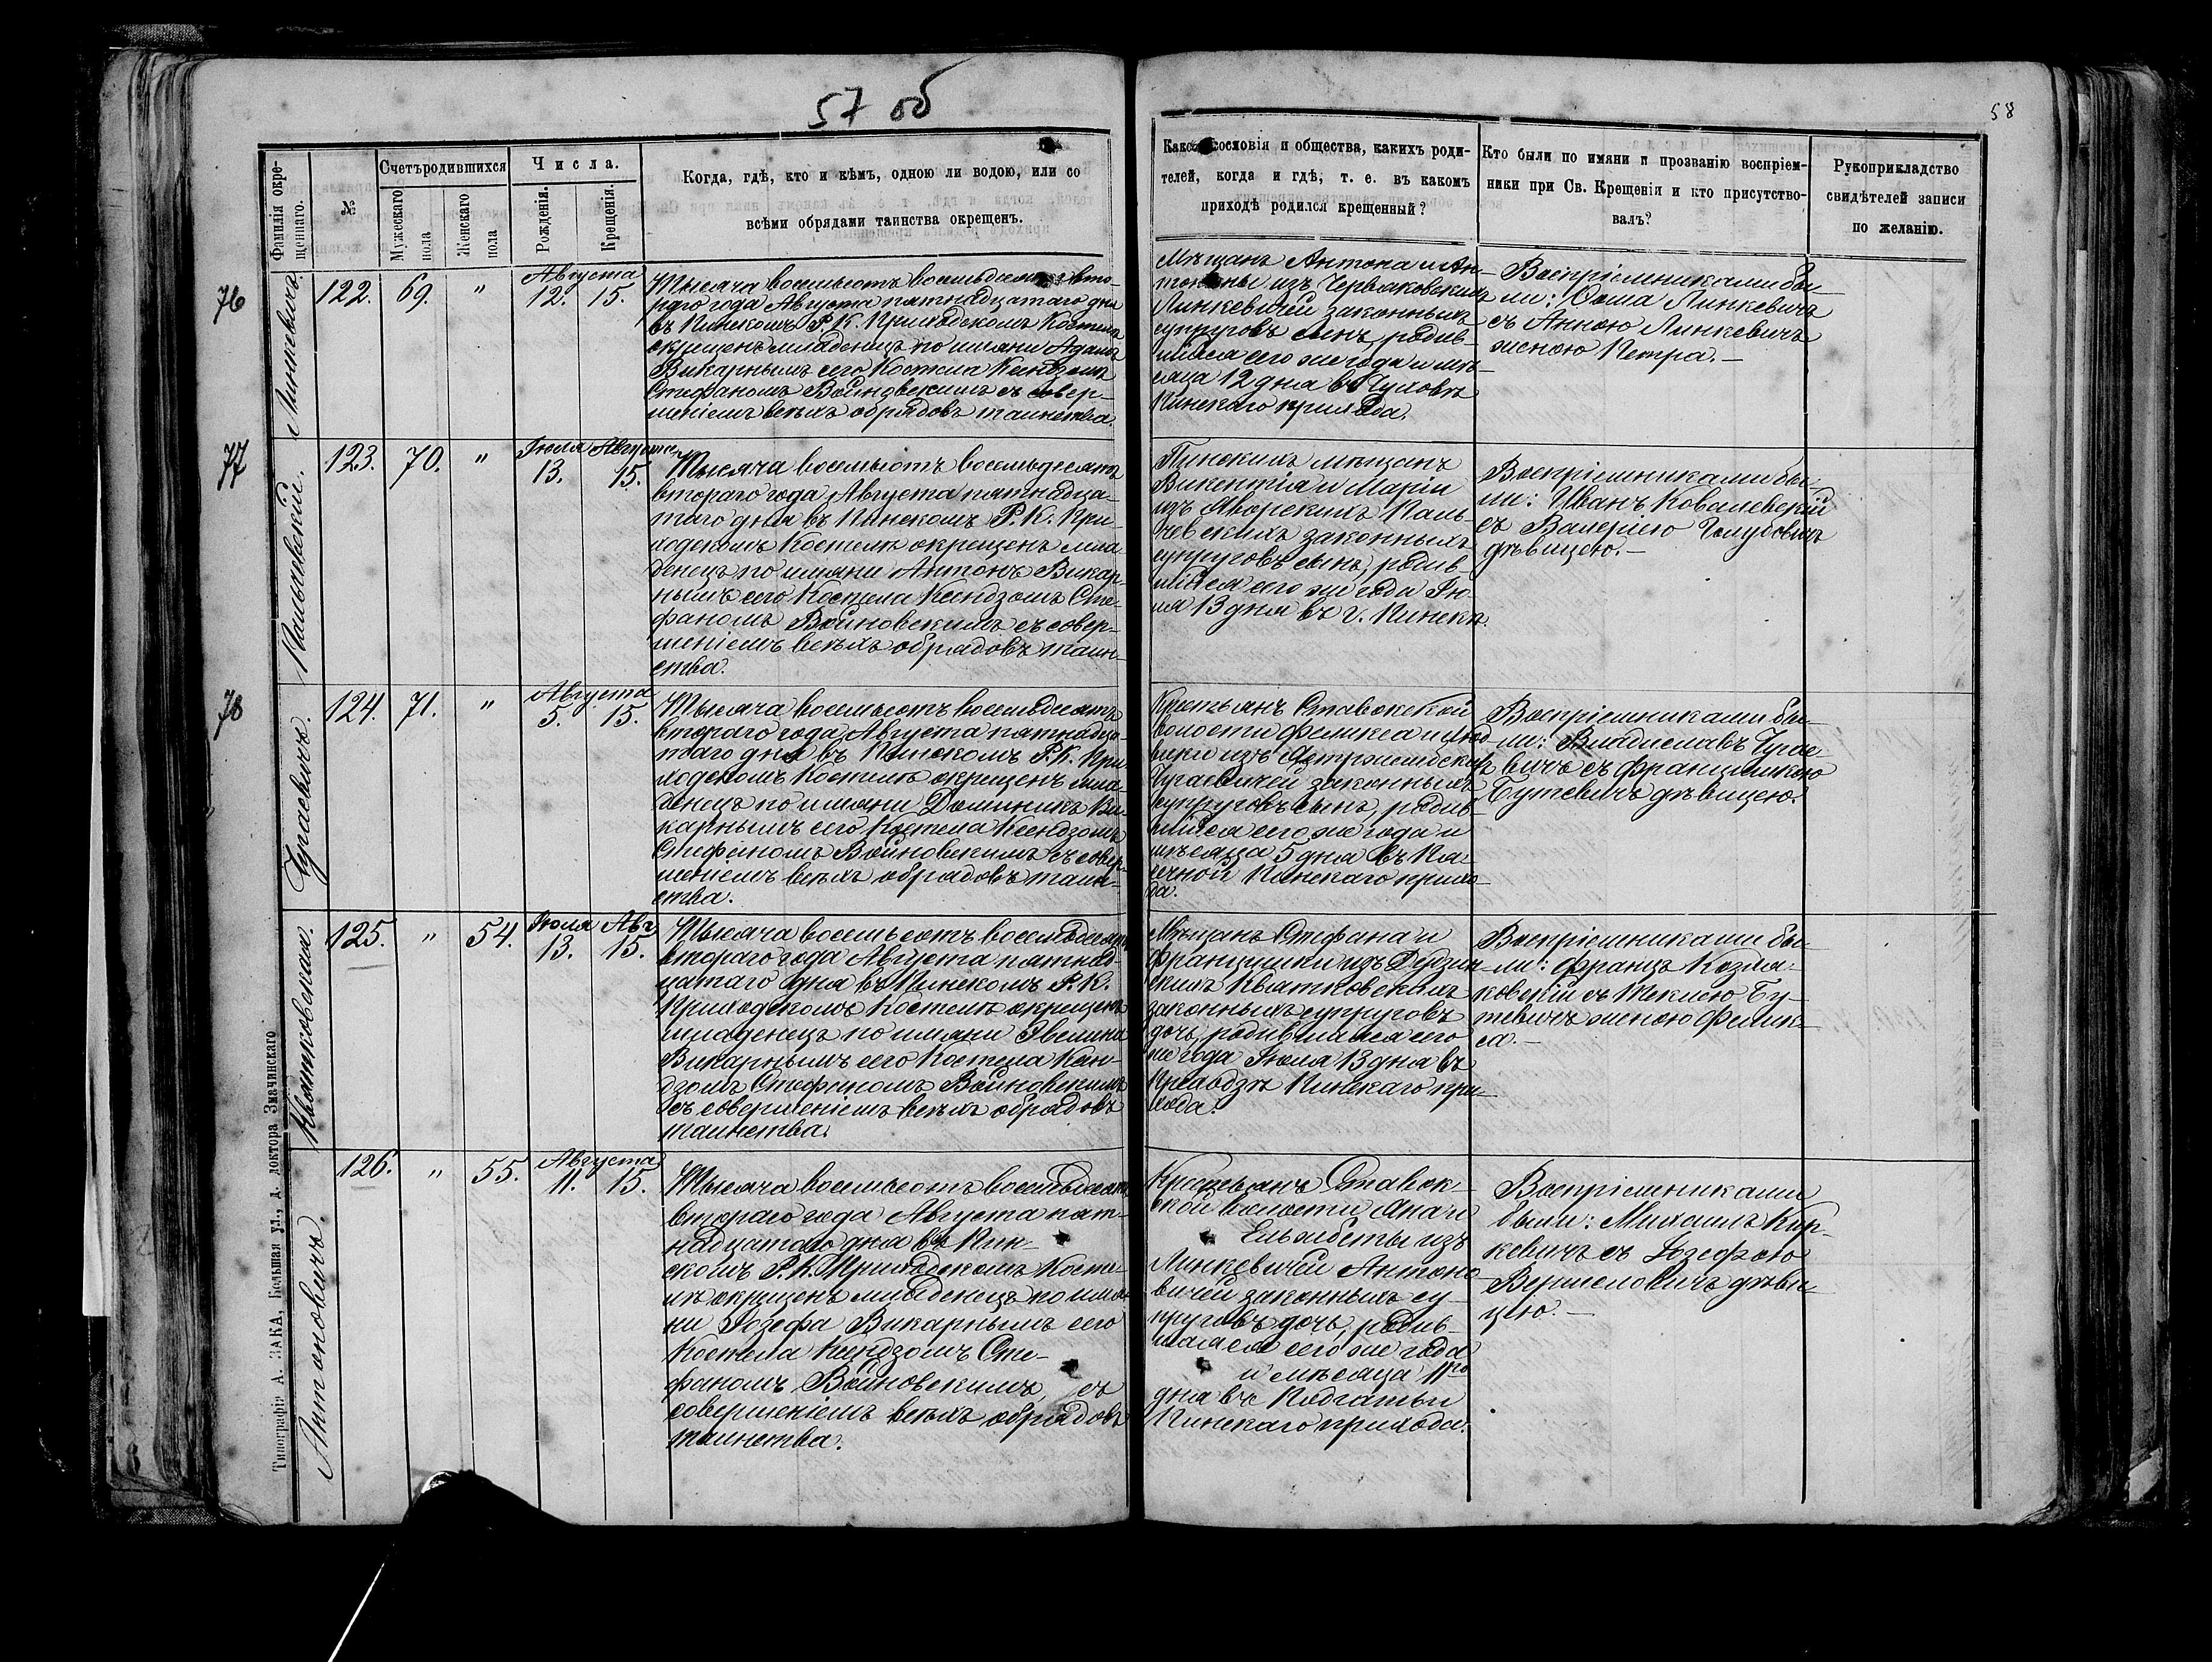 57 об
58
Фамилія окре-
щеннаго.
№
Счетъ родившихся
Мужескаго
пола
Женскаго
пола
Числа.
Рожденія.
Крещенія.
Когда, гдѣ, кто и кѣмъ, одною ли водою, или со
всѣми обрядами таинства окрещенъ.
сословія и общества, какихъ роди-
телей, когда и гдѣ, т. е. въ какомъ
приходѣ родился крещенный?
Кто были по имяни и прозванію воспріем-
ники при Св. Крещенія и кто присутство-
валъ?
Рукоприкладство
свидѣтелей записи
по желанію.
76
Линкевичъ.
122. 69. "
Августа
12. 15.
Тысяча восемьсотъ восемьдесятъ вто-
раго года Августа пятнадцатаго дня
въ Пинскомъ Р. К. Приходскомъ Костелѣ
окрещенъ младенецъ по имяни Адамъ
Викарнымъ сего Костела Ксендзомъ
Стефаномъ Войновскимъ съ совер-
шеніемъ всѣхъ обрядовъ таинства.
Мѣщанъ Антона и Ан-
тонины изъ Червяковскихъ
Линкевичей законныхъ
супруговъ сынъ, родив-
шійся сего же года и мѣ-
сяца 12 дня въ
Пинскаго прихода.
Воспріемниками бы-
ли: Ѳома Линкевичъ
съ Анною Линкевичъ
женою Петра.—
77
Пальчевскій.
123. 70. "
Іюля Августа
13. 15.
Тысяча восемьсотъ восемьдесятъ
втораго года Августа пятнадца-
таго дня въ Пинскомъ Р. К. При-
ходскомъ Костелѣ окрещенъ мла-
денецъ по имяни Антонъ Викар-
нымъ сего Костела Ксендзомъ Сте-
фаномъ Войновскимъ съ совер-
шеніемъ всѣхъ обрядовъ таин-
ства.
Пинскихъ мѣщанъ
Викентія и Маріи
изъ Яворскихъ Паль-
чевскихъ законныхъ
супруговъ сынъ, родив-
шійся сего же года Ію-
ля 13 дня въ г. Пинскѣ.
Воспріемниками бы-
ли: Иванъ Ковалевскій
съ Валеріею Голубовичъ
дѣвицею.—
78
Чугаевичъ.
124. 71. "
Августа
5. 15.
Тысяча восемьсотъ восемьдесятъ
втораго года Августа пятнадца-
таго дня въ Пинскомъ Р. К. При-
ходскомъ Костелѣ окрещенъ мла-
денецъ по имяни Доминикъ Ви-
карнымъ сего Костела Ксендзомъ
Стефаномъ Войновскимъ съ совер-
шеніемъ всѣхъ обрядовъ таин-
ства.
Крестьянъ Ставокской
волости Феликса и
изъ
Чугаевичей законныхъ
супруговъ сынъ, родив-
шійся сего же года и
мѣсяца 5 дня въ Па-
сѣчной Пинскаго прихо-
да.
Воспріемниками бы-
ли: Владиславъ Чугае-
вичъ съ Францишкою
Бутевичъ дѣвицею.
Квятковская.
125. " 54.
Іюля Авг.
13. 15.
Тысяча восемьсотъ восемьдесятъ
втораго года Августа пятнад-
цатаго дня въ Пинскомъ Р. К.
Приходскомъ Костелѣ окрещенъ
младенецъ по имяни Эвелина
Викарнымъ сего Костела Ксен-
дзомъ Стефаномъ Войновскимъ
съ совершеніемъ всѣхъ обрядовъ
таинства.
Мѣщанъ Стефана и
Францишки изъ
Квятковскихъ
законныхъ супруговъ
дочь, родившаяся сего
же года Іюля 13 дня въ
Пинскаго при-
хода.
Воспріемниками бы-
ли: Францъ Козля-
ковскій съ Теклею Бу-
тевичъ женою Феликс-
са.—
Антоновичъ.
126. " 55.
Августа
11. 15.
Тысяча восемьсотъ восемьдесятъ
втораго года Августа пят-
надцатаго дня въ Пин-
скомъ Р. К. Приходскомъ Косте-
лѣ окрещенъ младенецъ по имя-
ни Іозефа Викарнымъ сего
Костела Ксендзомъ Сте-
фаномъ Войновскимъ, съ
совершеніемъ всѣхъ обрядовъ
таинства.
Крестьянъ Ставок-
ской волости и
Ельжбеты изъ
Линкевичей Антоно-
вичей законныхъ су-
пруговъ дочь, родив-
шаяся сего же года
и мѣсяца 11го
дня въ Подгатьи
Пинскаго прихода.
Воспріемниками
были: Михаилъ Кур-
кевичъ съ Іозефою
Вериславичъ дѣви-
цею.—
Типографія А. ЗАКА, Большая ул., д. доктора Змачинскаго